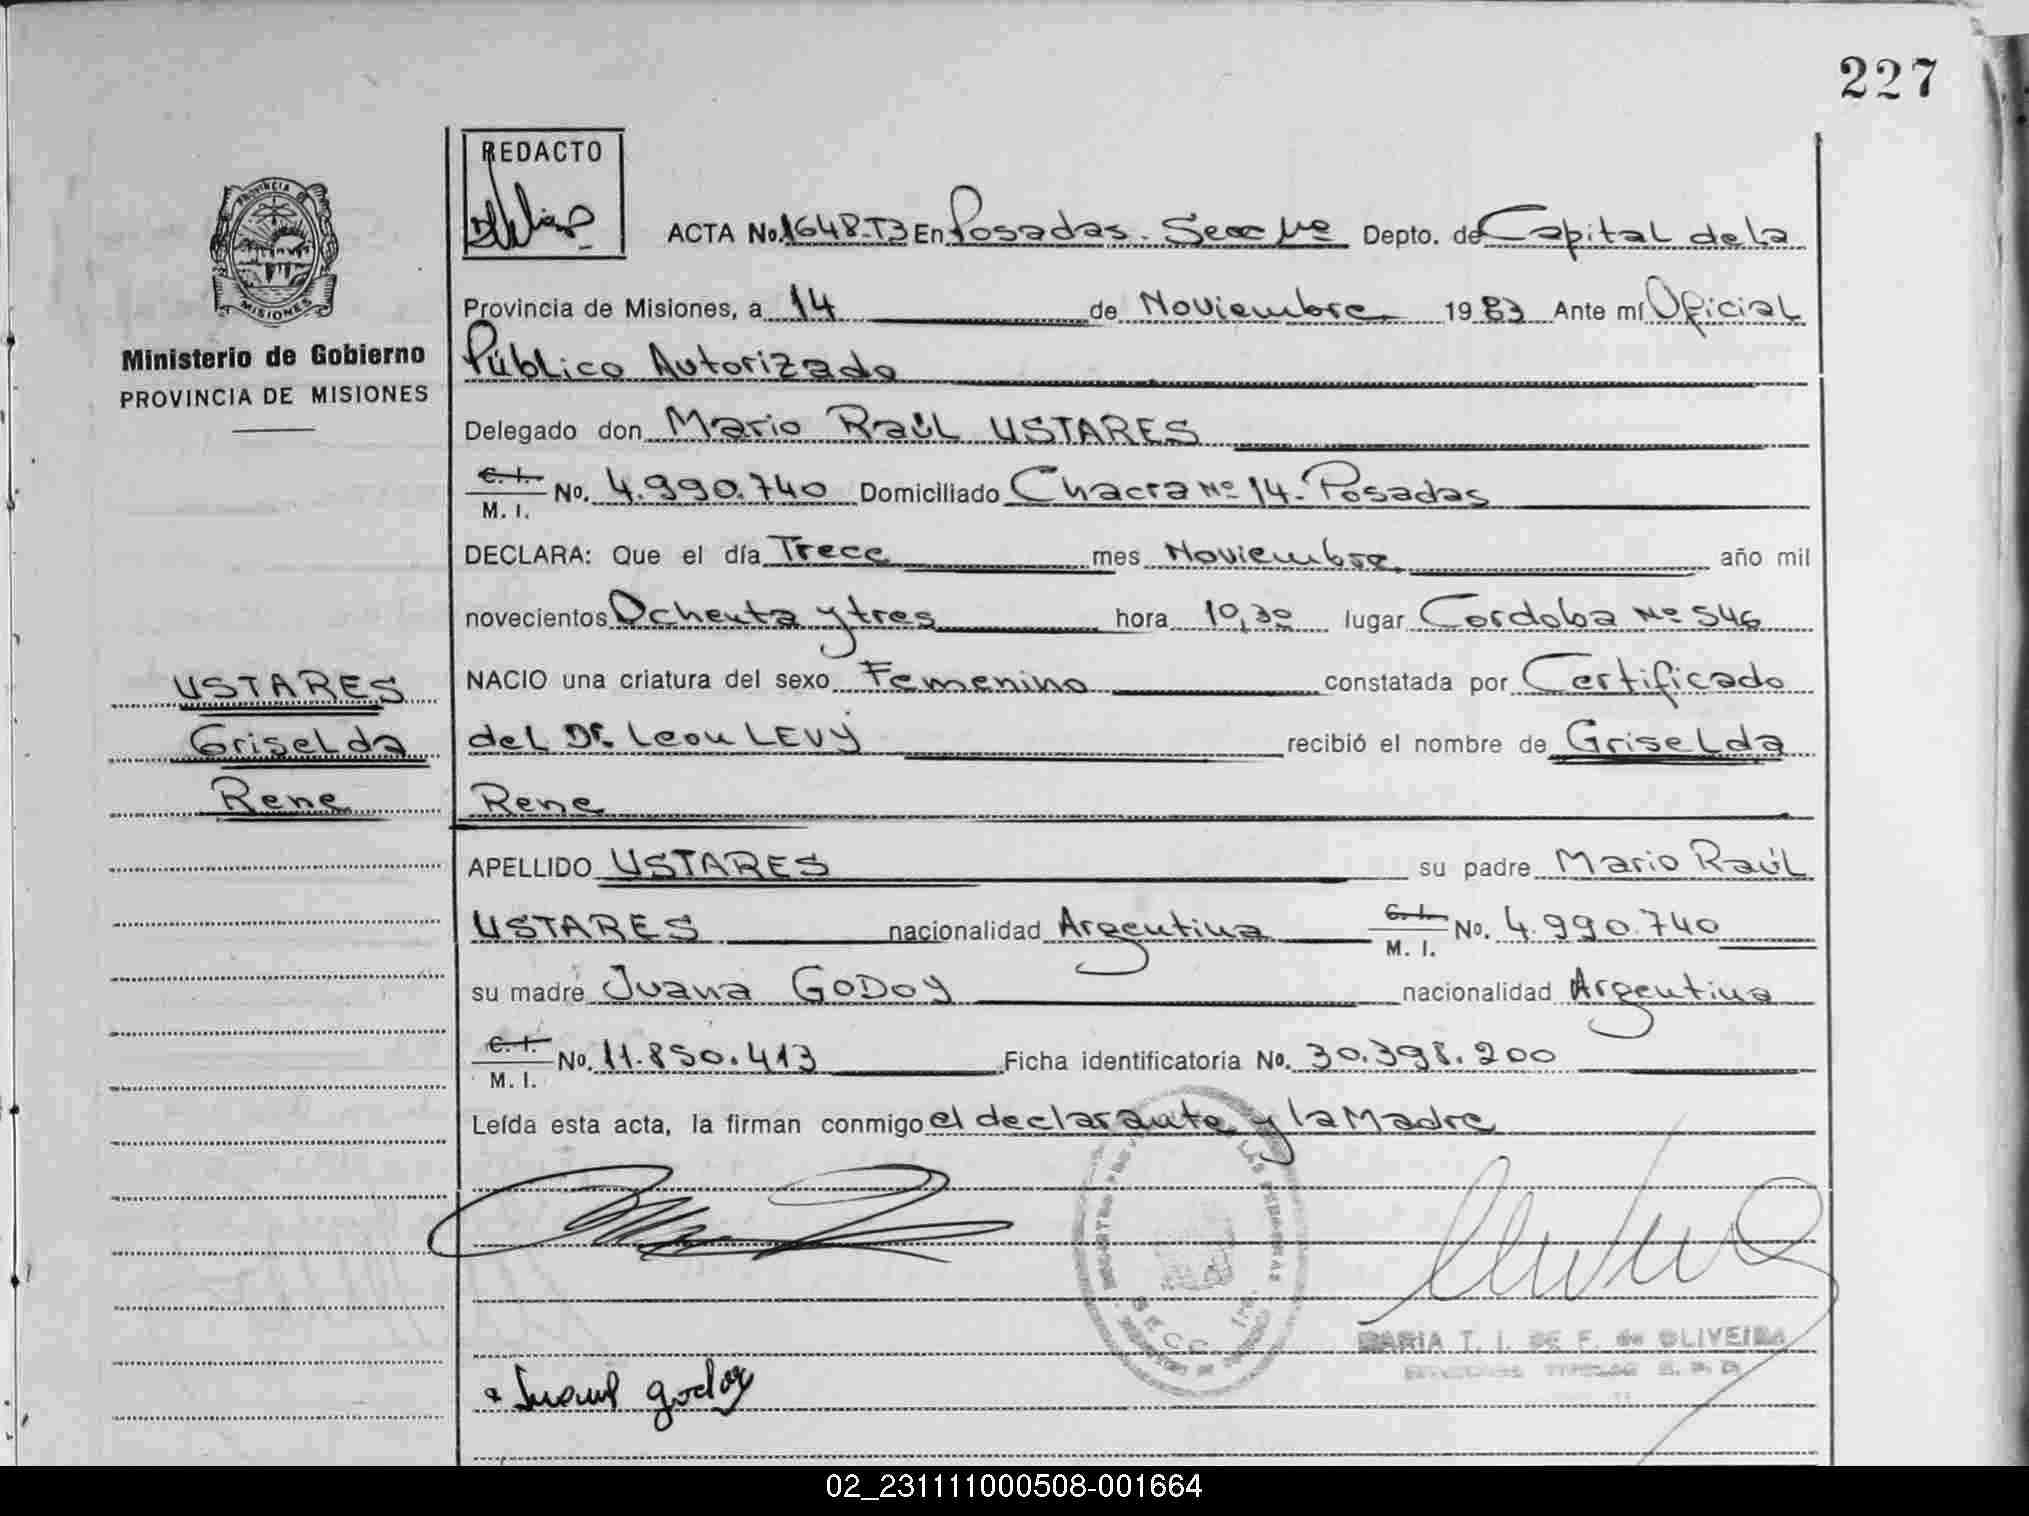 227
REDACTO
ACTA No. 1648-T3 En Posadas. Secc 1ra Depto. de Capital de la
PROVINCIA
MISIONES
Provincia de Misiones, a 14 de Noviembre 1983 Ante mí Oficial
Ministerio de Gobierno
PROVINCIA DE MISIONES
Público Autorizado
Delegado don Mario Raúl USTARES
C. I. M. I. No. 4.990.740 Domiciliado Chacra Nº 14. Posadas
DECLARA: Que el día Trece mes Noviembre año mil
novecientos Ochenta y tres hora 10,30 lugar Cordoba Nº 546
USTARES
NACIO una criatura del sexo Femenino constatada por Certificado
Griselda
del Dr. Leon LEVY recibió el nombre de Griselda
Rene
Rene
APELLIDO USTARES su padre Mario Raúl
USTARES nacionalidad Argentina C. I. M. I. No. 4.990.740
su madre Juana GODOY nacionalidad Argentina
C. I. M. I. No. 11.850.413 Ficha identificatoria No. 30.398.200
Leída esta acta, la firman conmigo el declarante y la Madre
MARIA T. I. DE F. de OLIVEIRA
Juana godoy
02_231111000508-001664